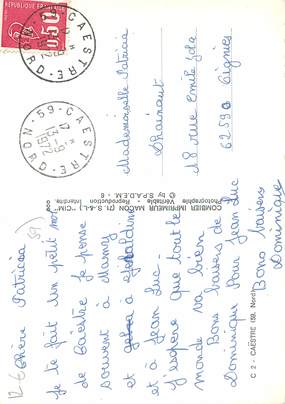 Chère Patricia
Je te fait un petit mot
de Caëstre Je pense
souvent à mamy
et à géraldine
et à Jean Luc.
J'espère que tout le
monde va bien
Bons baisers de
Dominique Pour Jean Luc
Bons baisers
Dominique
COMBIER IMPRIMEUR MACON (71-S.-&-L.) "CIM"
Photographie Véritable - Reproduction Interdite
© by S.P.A.D.E.M. - 6
C 2 - CAËSTRE (59. Nord)
Mademoiselle Patricia
18 rue Emile Zola
62590 Oignies
59 - CAESTRE
NORD
CAESTRE
NORD
RÉPUBLIQUE FRANÇAISE
0,50